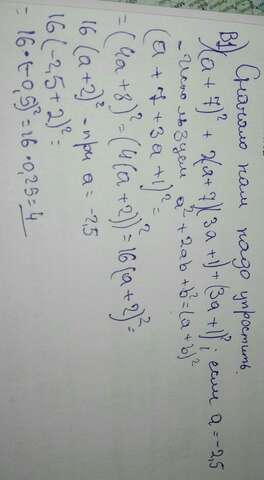 Сначала нам надо упростить
В1) (a+7)² + 2(a+7)(3a+1)+(3a+1)², если a=-2,5
- Используем a²+2ab+b²=(a+b)²
(a+7+3a+1)²=
=(4a+8)²=(4(a+2))²=16(a+2)²=
16(a+2)² - при a=-2,5
16(-2,5+2)²=
=16·(-0,5)²=16·0,25=4